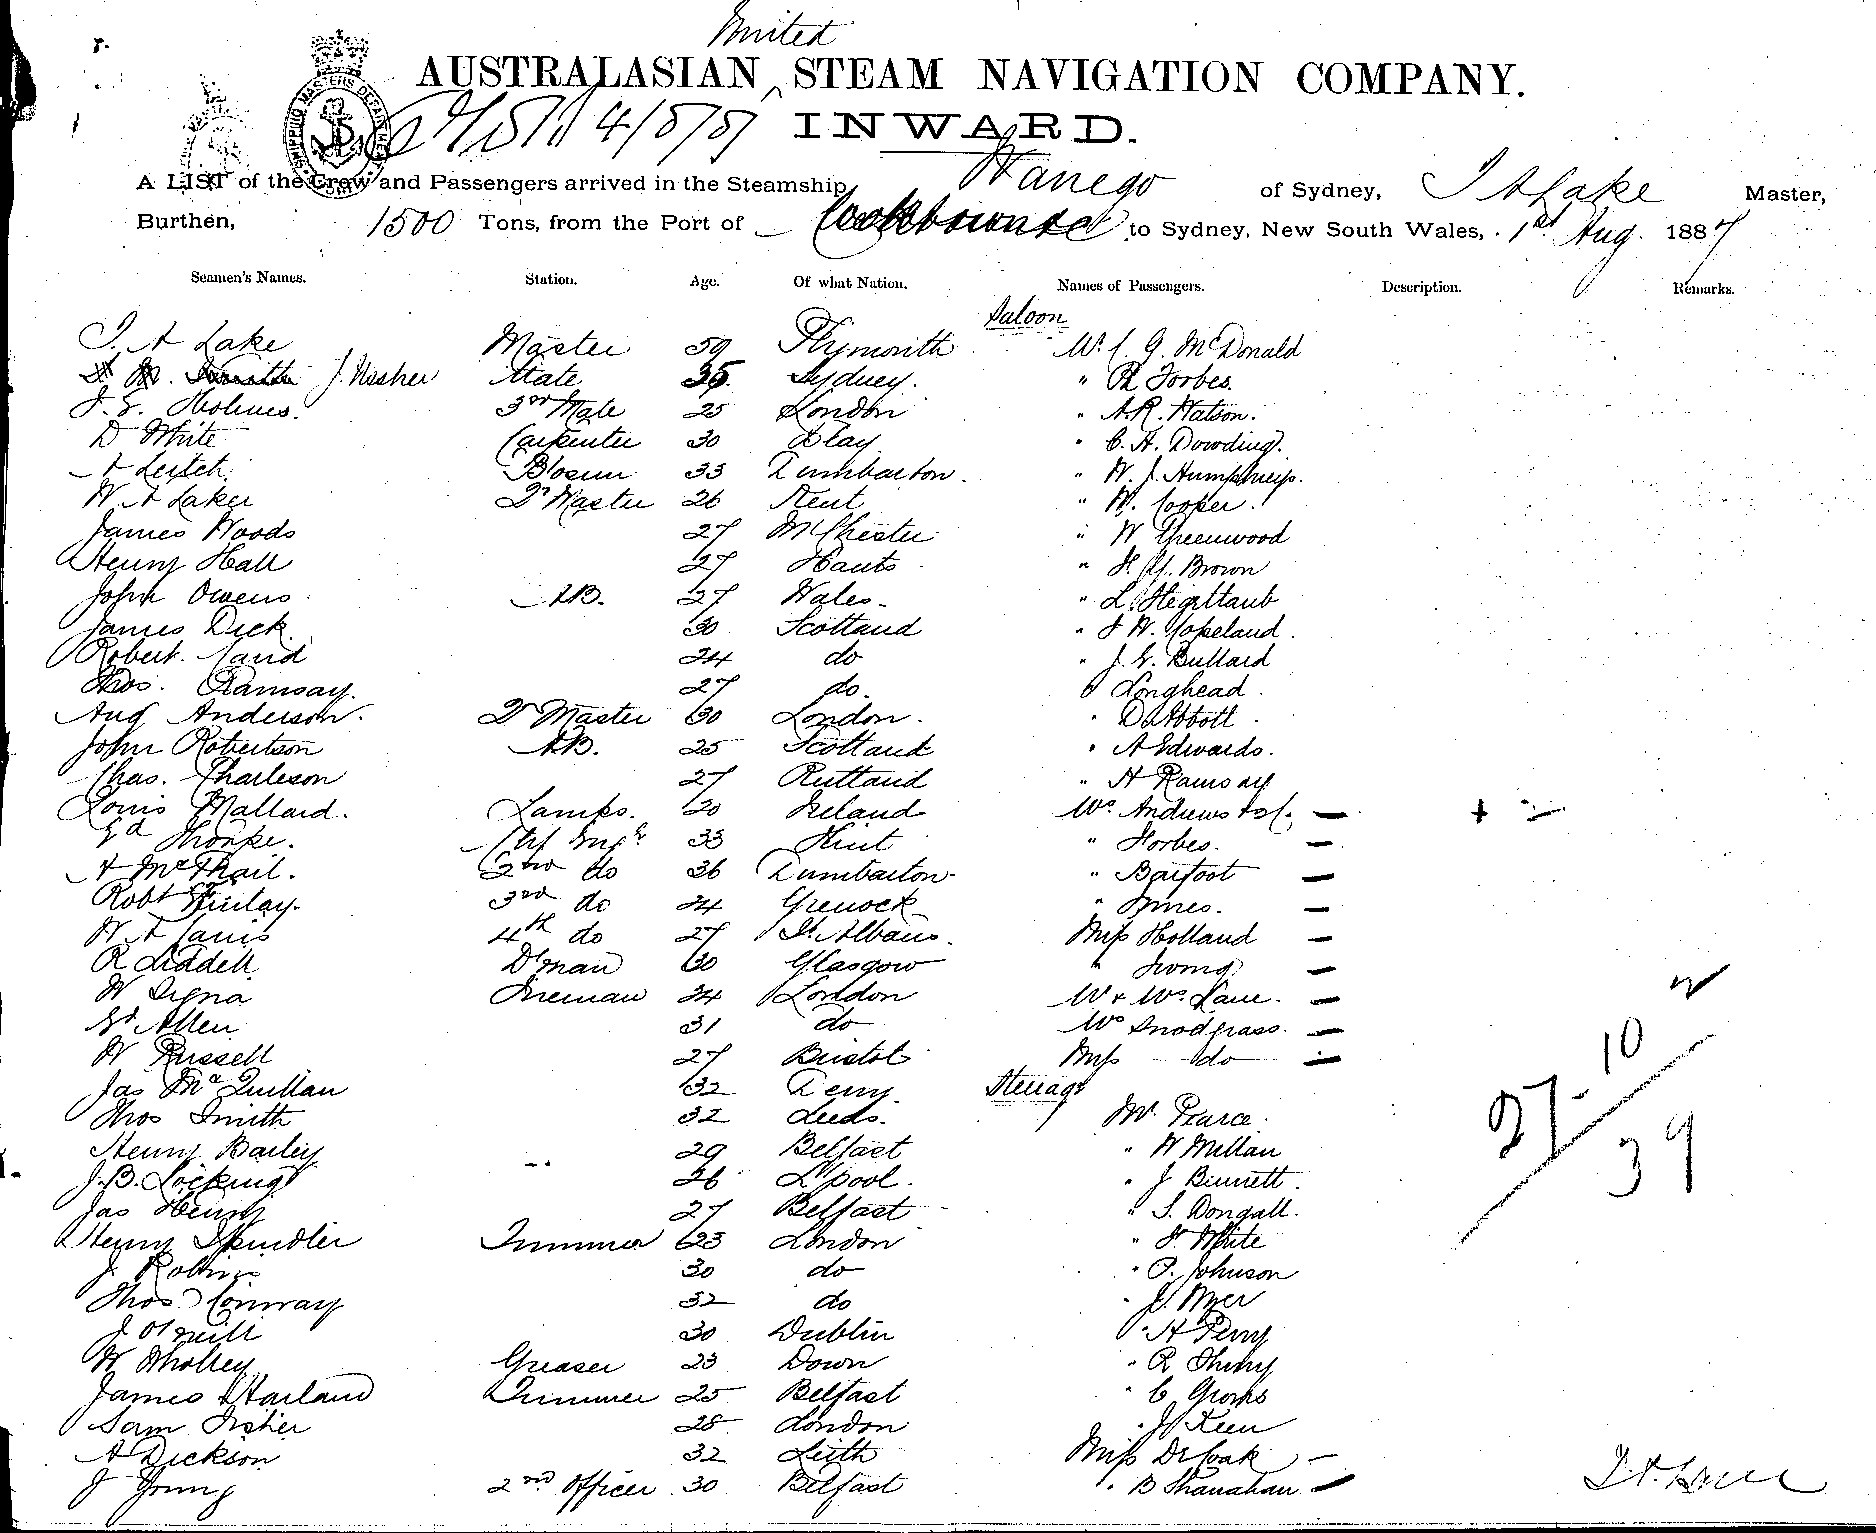 United
AUSTRALASIAN ^ STEAM NAVIGATION COMPANY.
INWARD.
A LIST of the Crew and Passengers arrived in the Steamship Wanego of Sydney, T A Lake Master,
Burthen, 1500 Tons, from the Port of Cooktown to Sydney, New South Wales, 1st Aug. 1887
Seamen's Names. Station. Age. Of what Nation. Names of Passengers. Description. Remarks.
Saloon
T. A Lake Master 59 Plymouth Mr C. G. McDonald
Mate 35 Sydney. " R Forbes.
J. E. Holmes. 3rd Mate 25 London " A.R. Watson.
D White Carpenter 30 " C. H. Dowding.
A Leitch. Bosun 33 Dumbarton. " W. J. Humphreys.
W A Laker Qr Master 26 Kent " W. Cooper.
James Woods 27 M'Chester " W Greenwood
Henry Hall 27 Hants " Brown
John Owens A.B. 27 Wales "
James Dick 30 Scotland " J W. Copeland.
Robert 24 do " J. E. Bullard
Thos. Ramsay. 27 do. " Longhead.
Aug Anderson. Qr Master 30 London. " D Abbott.
John Robertson A.B. 25 Scotland " A Edwards.
Chas. Charleson 27 Rutland " H Ramsay
Louis Mallard. Lamps. 20 Ireland Mrs Andrews
Ed Thorpe. Chf Engr 33 " Forbes.
A McPhail. 2nd do 36 Dumbarton " Barfoot
Robt Finlay. 3rd do 24 Grenock " Innes.
W A 4th do 27 St Albans. Miss Holland
R Liddell D'man 30 Glasgow " Irving
W Fireman 24 London Mr & Mrs Lane.
Ed. Allen 31 do Mrs Snodgrass.
W Russell 27 Bristol Miss do
Jas McQuillan 32 Derry. Steerage
Thos Smith 32 Leeds. Mr. Pearce.
Henry Bailey 29 Belfast " W Millan
J. B. Locking 26 L'pool. " J Binnett.
Jas Henry 27 Belfast " S. Dongall.
Henry Spindler Trimmer 23 London " White
J. 30 do " Johnson
Thos Conway 32 do " J.
J O'Neill 30 Dublin " A Perry
W Wholley Greaser 23 Down " R
James Harland Trimmer 25 Belfast " C
Sam Fisher 28 London " J Keen
A Dickson 32 Leith Miss
J Young 2nd Officer 30 Belfast " B Shanahan
27
10
39